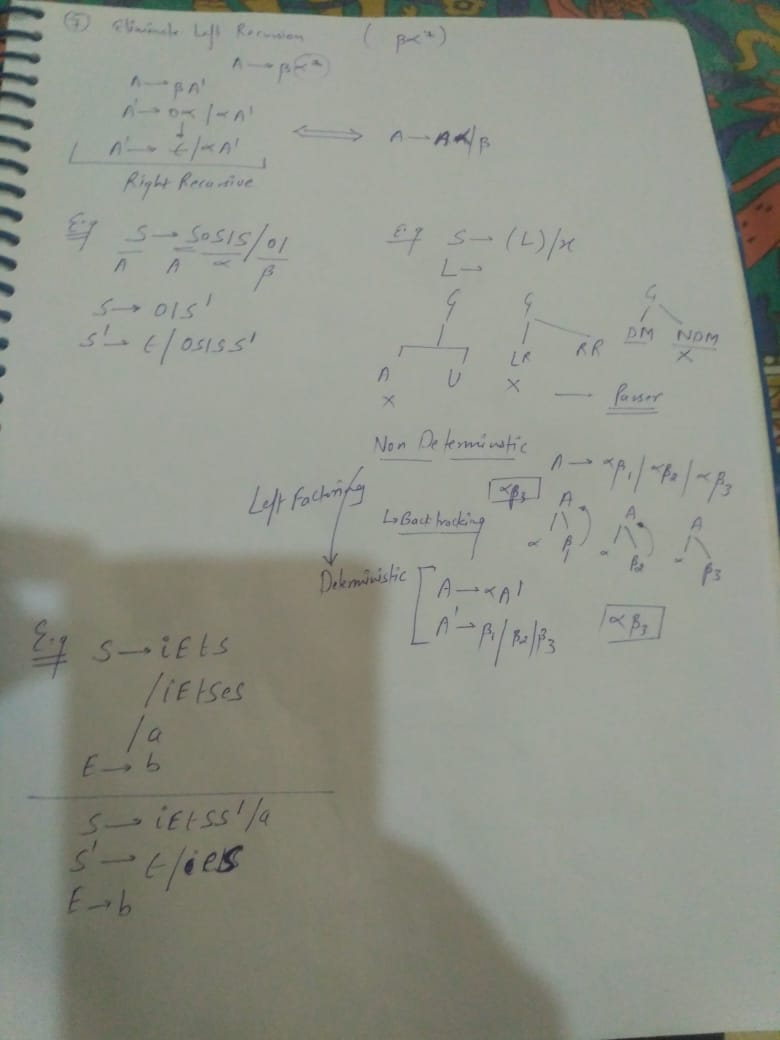 ⑤ Eliminate Left Recursion ( βα*)
A → βα*
A → βA'
A' → /αA'
A' → ε/αA'
Right Recursive
⟺ A → Aα/β
E.g S → S0S1S/01
A A α β
S → 01S'
S' → ε/0S1SS'
E.g S → (L)/x
L →
G
A U
X
G
LR RR
X
G
DM NDM
X
— Parser
Non Deterministic
A → αβ₁/αβ₂/αβ₃
Left Factoring
αβ₃
↳ Backtracking
A
α β₁
A
α β₂
A
α β₃
Deterministic
A → αA'
A' → β₁/β₂/β₃
αβ₃
E.g S → iEtS
/iEtSeS
/a
E → b
S → iEtSS'/a
S' → ε/eS
E → b